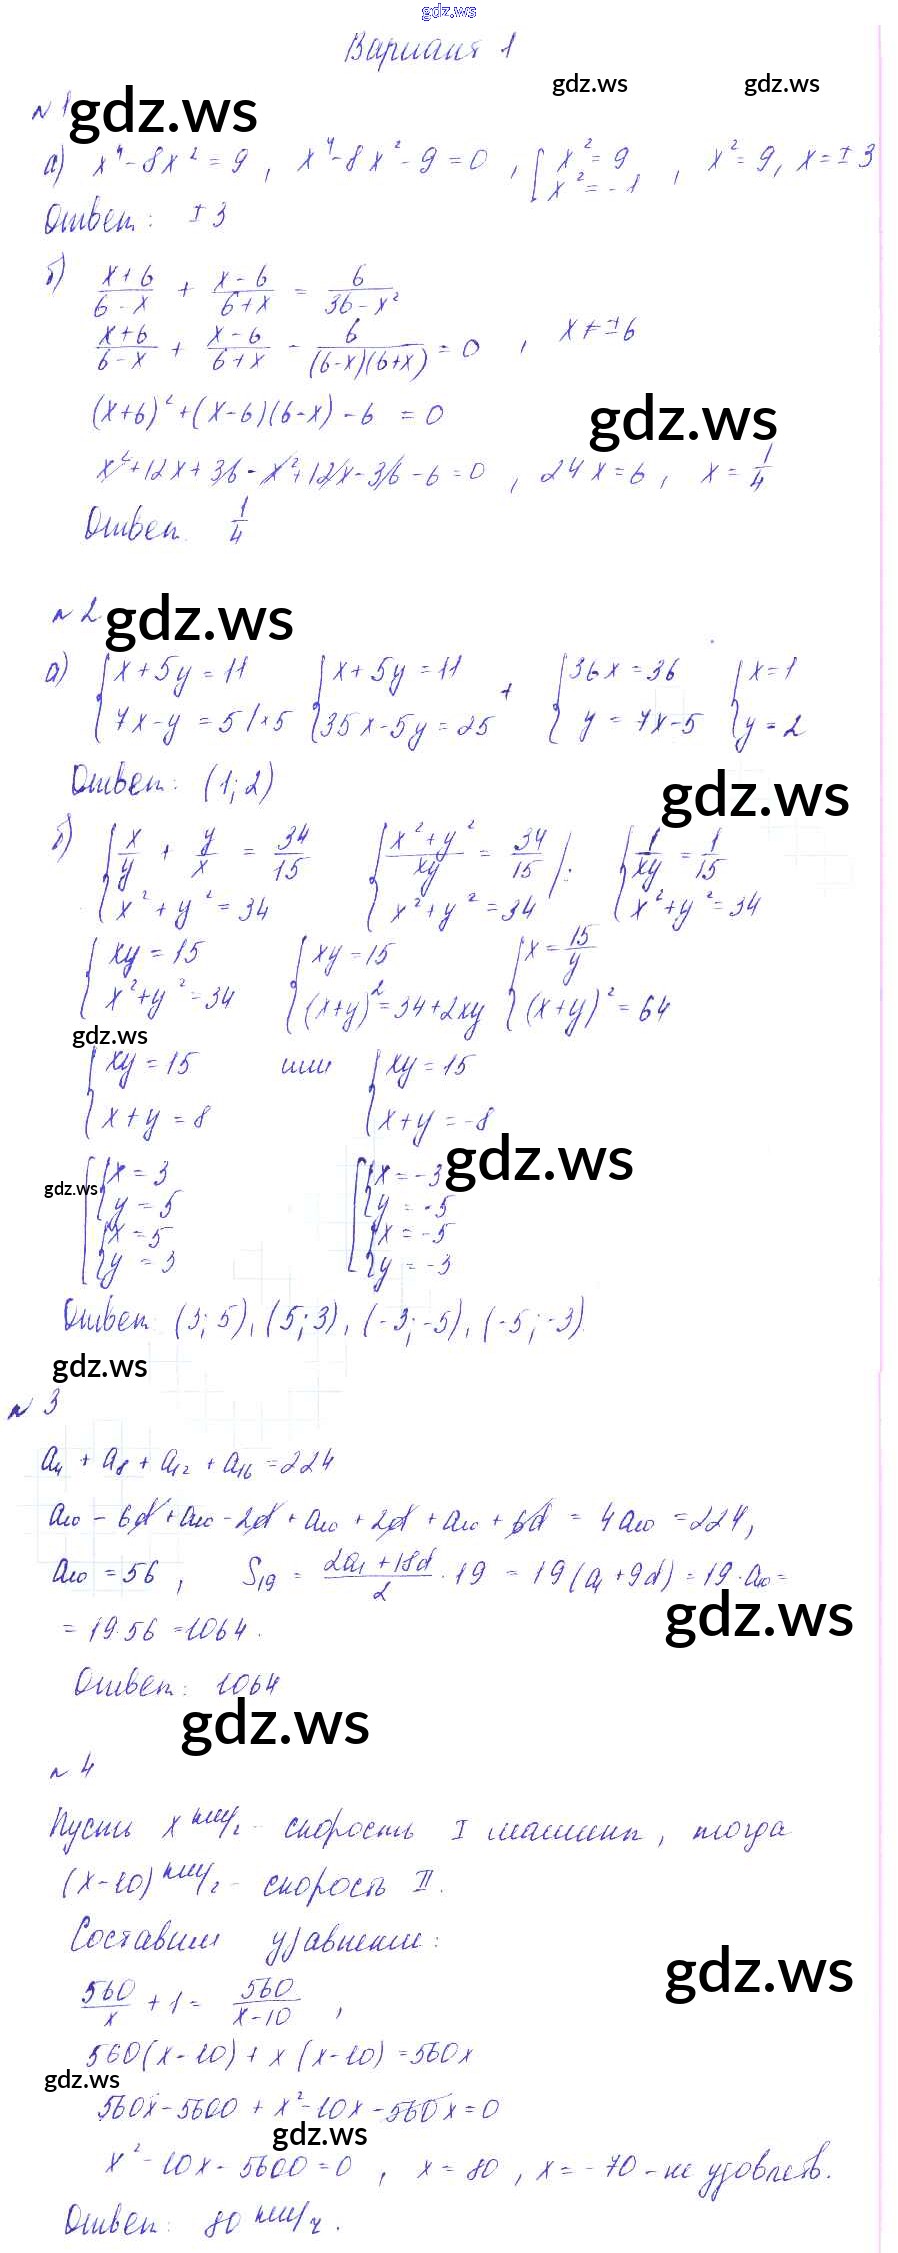 gdz.ws
Вариант 1
gdz.ws gdz.ws
№ 1 gdz.ws
а) x⁴ - 8x² = 9, x⁴ - 8x² - 9 = 0, [x² = 9 x² = -1, x² = 9, x = ± 3
Ответ: ± 3
б) (x+6)/(6-x) + (x-6)/(6+x) = 6/(36-x²)
(x+6)/(6-x) + (x-6)/(6+x) - 6/((6-x)(6+x)) = 0, x ≠ ± 6
(x+6)² + (x-6)(6-x) - 6 = 0
gdz.ws
x² + 12x + 36 - x² + 12x - 36 - 6 = 0, 24x = 6, x = 1/4
Ответ. 1/4
№ 2 gdz.ws
а) {x + 5y = 11 7x - y = 5 | ×5 {x + 5y = 11 35x - 5y = 25 + {36x = 36 y = 7x - 5 {x = 1 y = 2
Ответ: (1; 2)
gdz.ws
б) {x/y + y/x = 34/15 x² + y² = 34 {(x² + y²)/xy = 34/15 x² + y² = 34 ): {1/xy = 1/15 x² + y² = 34
{xy = 15 x² + y² = 34 {xy = 15 (x+y)² = 34 + 2xy {x = 15/y (x+y)² = 64
gdz.ws
{xy = 15 x + y = 8 или {xy = 15 x + y = -8
gdz.ws
[{x = 3 y = 5 {x = 5 y = 3 [{x = -3 y = -5 {x = -5 y = -3
gdz.ws
Ответ: (3; 5), (5; 3), (-3; -5), (-5; -3).
gdz.ws
№ 3
a₄ + a₈ + a₁₂ + a₁₆ = 224
a₁₀ - 6d + a₁₀ - 2d + a₁₀ + 2d + a₁₀ + 6d = 4a₁₀ = 224,
a₁₀ = 56, S₁₉ = (2a₁ + 18d)/2 · 19 = 19(a₁ + 9d) = 19 · a₁₀ =
gdz.ws
= 19·56 = 1064.
Ответ: 1064
gdz.ws
№ 4
Пусть x км/ч - скорость I машины, тогда
(x-10) км/ч - скорость II.
Составим уравнение:
gdz.ws
560/x + 1 = 560/(x-10),
560(x-10) + x(x-10) = 560x
gdz.ws
560x - 5600 + x² - 10x - 560x = 0
gdz.ws
x² - 10x - 5600 = 0, x = 80, x = -70 - не удовлетв.
Ответ: 80 км/ч.